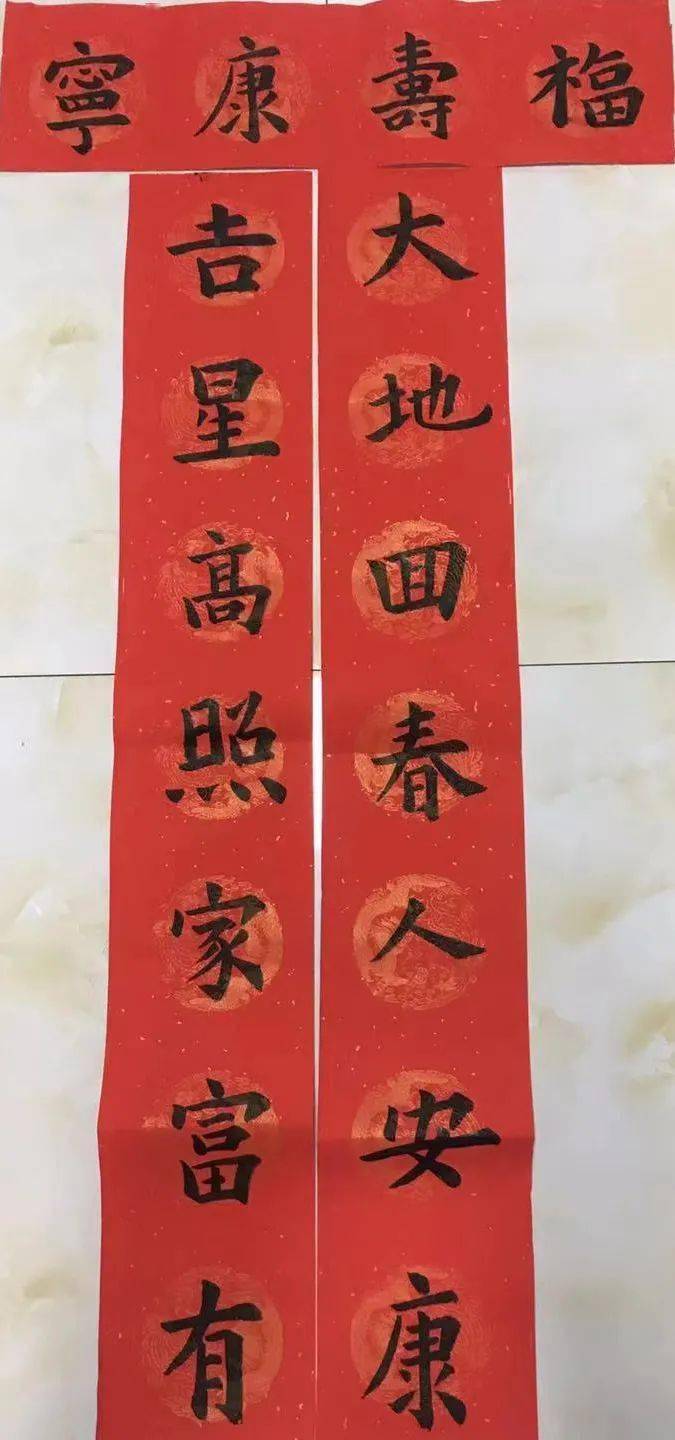 福壽康寧
大地回春人安康
吉星高照家富有